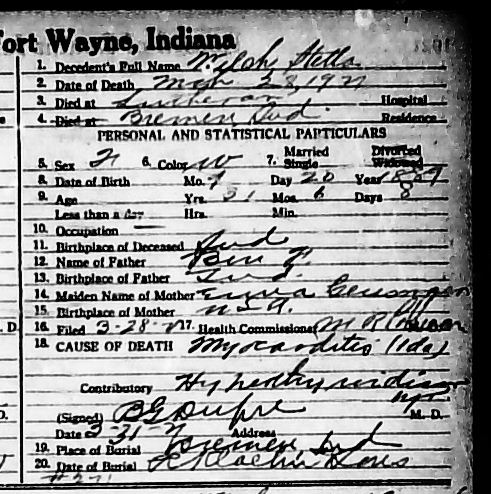 Fort Wayne, Indiana
1. Decedent's Full Name Stella
2. Date of Death Mch 28, 1921
3. Died at Lutheran Hospital
4. Died at Bremen Ind. Residence
PERSONAL AND STATISTICAL PARTICULARS
5. Sex F 6. Color W 7. Married Single Divorced Widowed
8. Date of Birth Mo. 9 Day 20 Year 1889
9. Age Yrs. 31 Mos. 6 Days 8
Less than a day Hrs. Min.
10. Occupation —
11. Birthplace of Deceased Ind
12. Name of Father Ben F.
13. Birthplace of Father Ind.
14. Maiden Name of Mother Emma
15. Birthplace of Mother
16. Filed 3-28- 17. Health Commissioner M R
18. CAUSE OF DEATH Myocarditis
Contributory
(Signed) B G Dupre M. D.
Date 3-31- Address
19. Place of Burial Bremen, Ind
20. Date of Burial